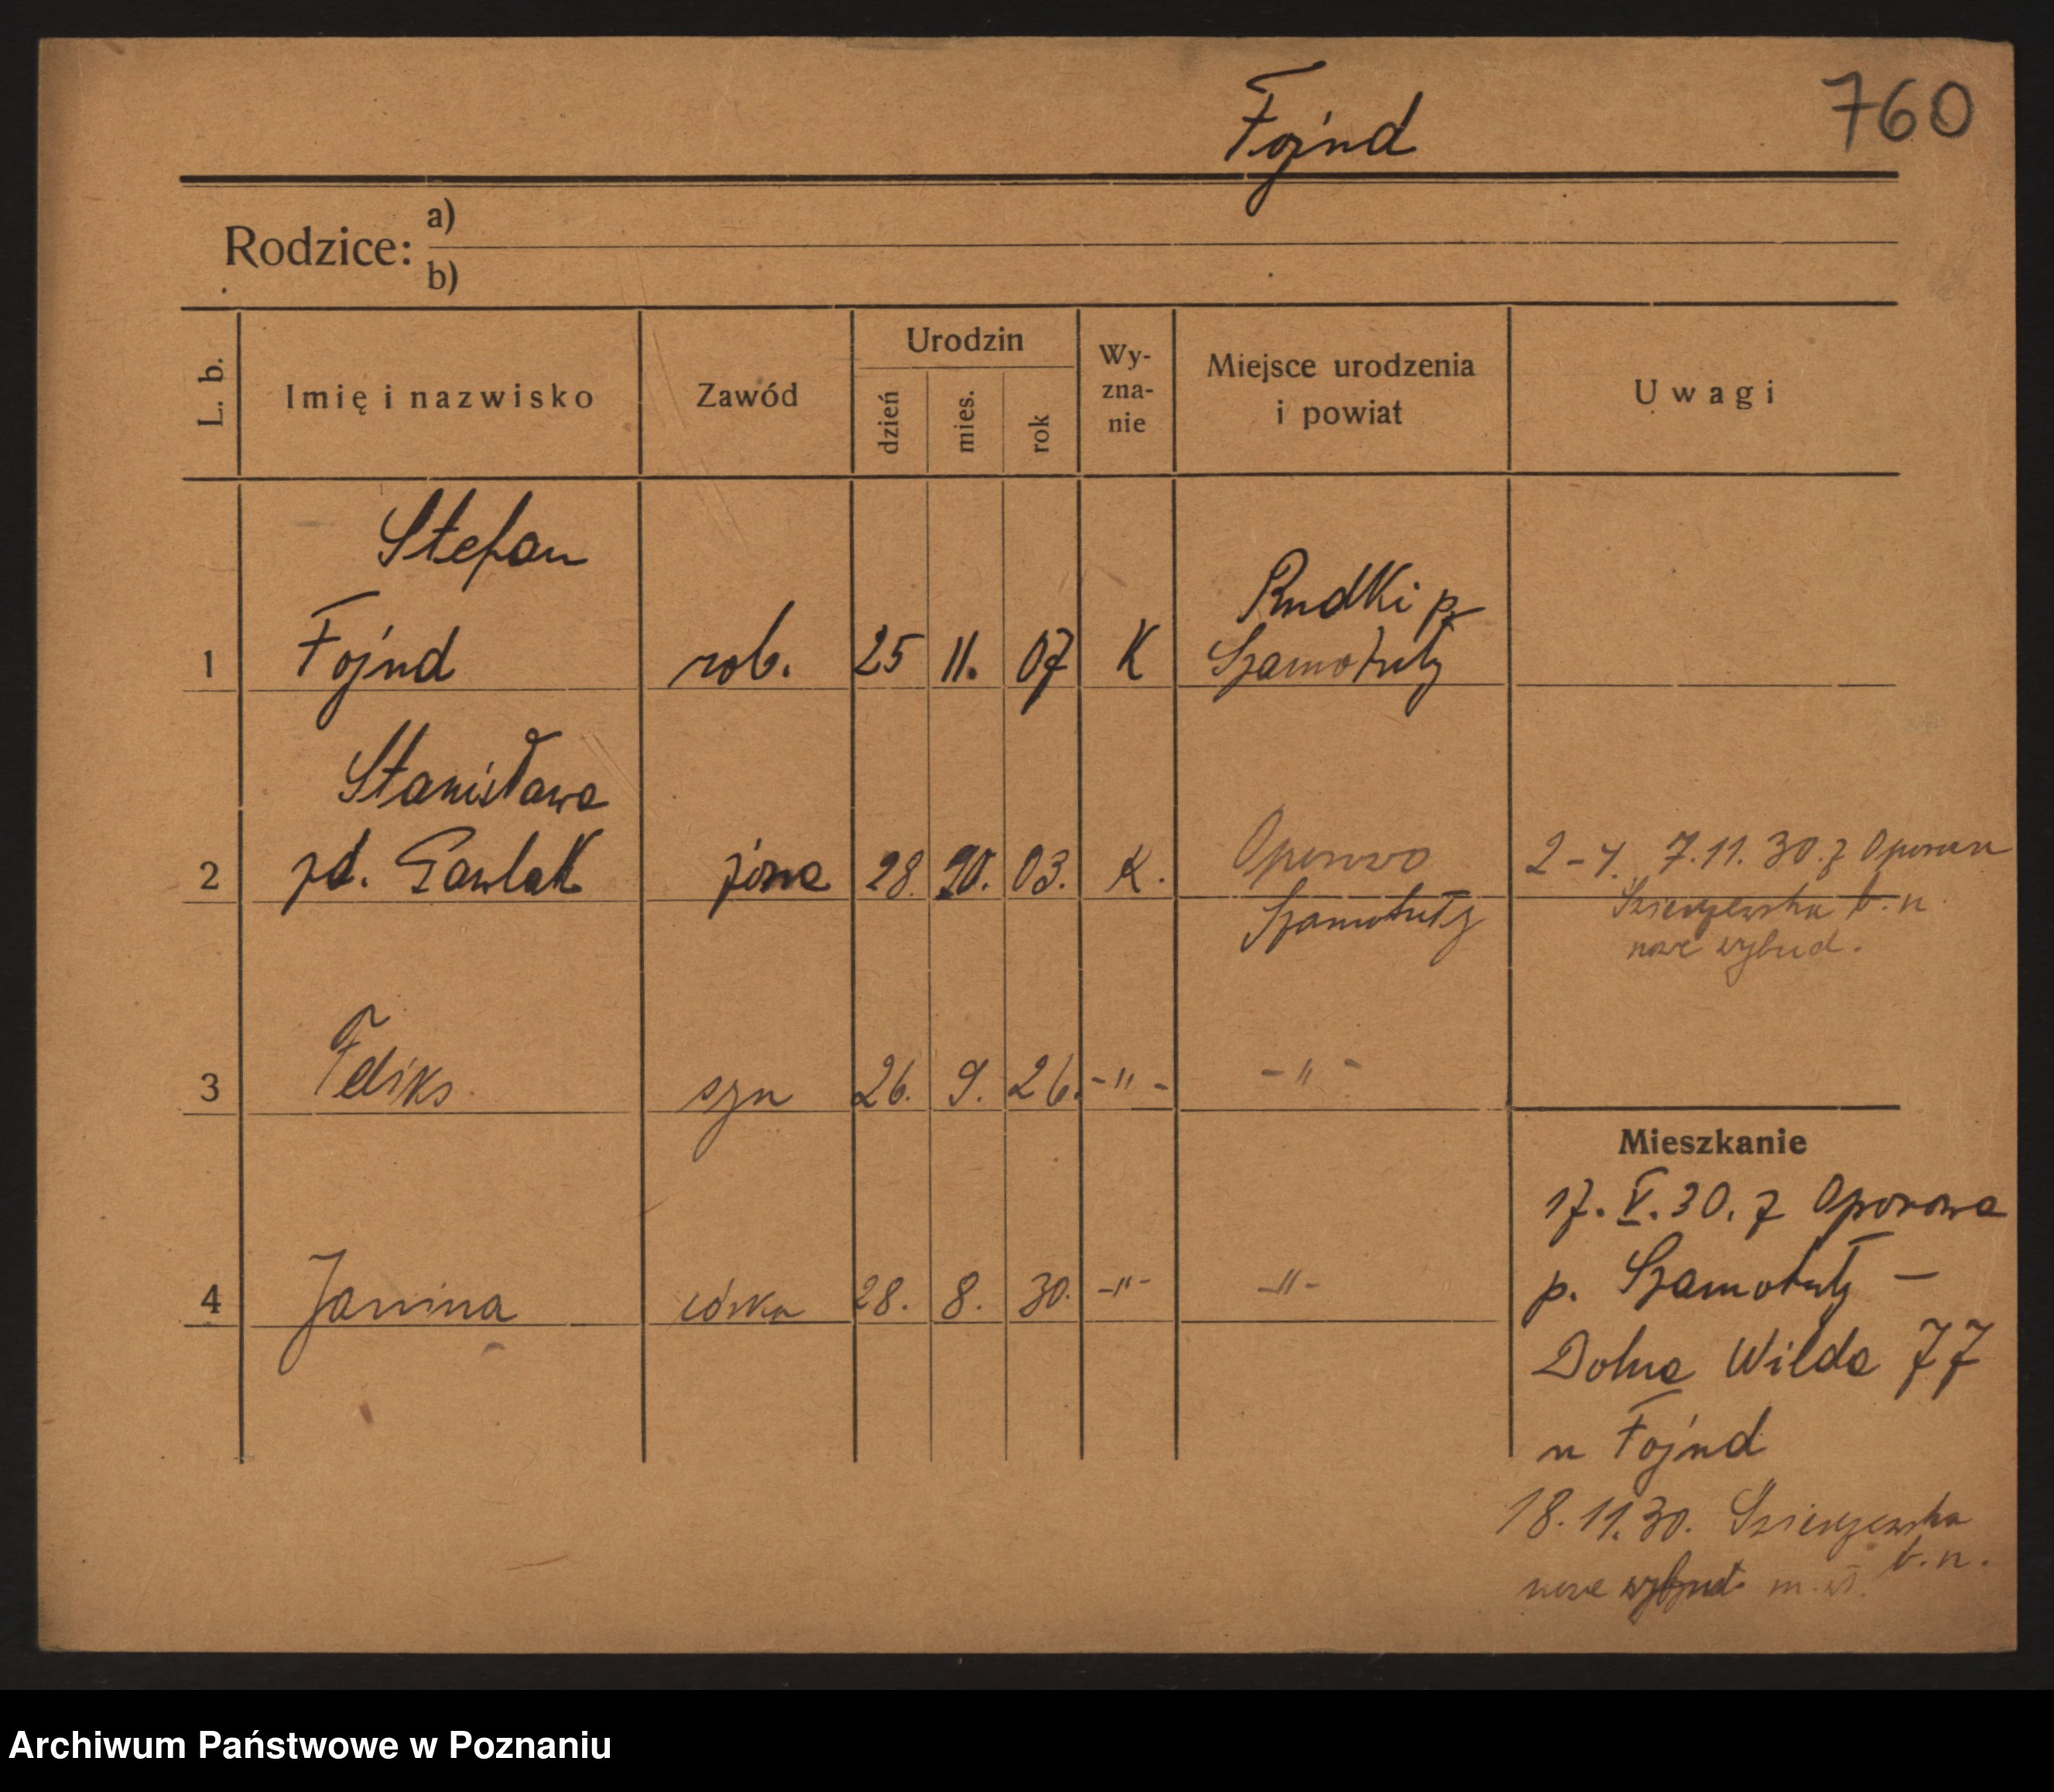 Fojnd
760
Rodzice: a)
b)
L. b.
Imię i nazwisko
Zawód
Urodzin
dzień
mies.
rok
Wy-
zna-
nie
Miejsce urodzenia
i powiat
Uwagi
Stefan
Rudki p.
1 Fojnd rob. 25 11. 07 K Szamotuły
Stanisława
2 zd. Gawlak żona 28. 10. 03. K. Oporowo 2-4. 7.11.30. z Oporowa
Szamotuły b. n.
nowe wybud.
3 Feliks syn 26. 9. 26. -"- -"-
Mieszkanie
4 Janina córka 28. 8. 30. -"- -"-
17. V. 30. z Oporowa
p. Szamotuły –
Dolna Wilda 77
u Fojnd
18.11.30. b. n.
nowe wybud.
Archiwum Państwowe w Poznaniu